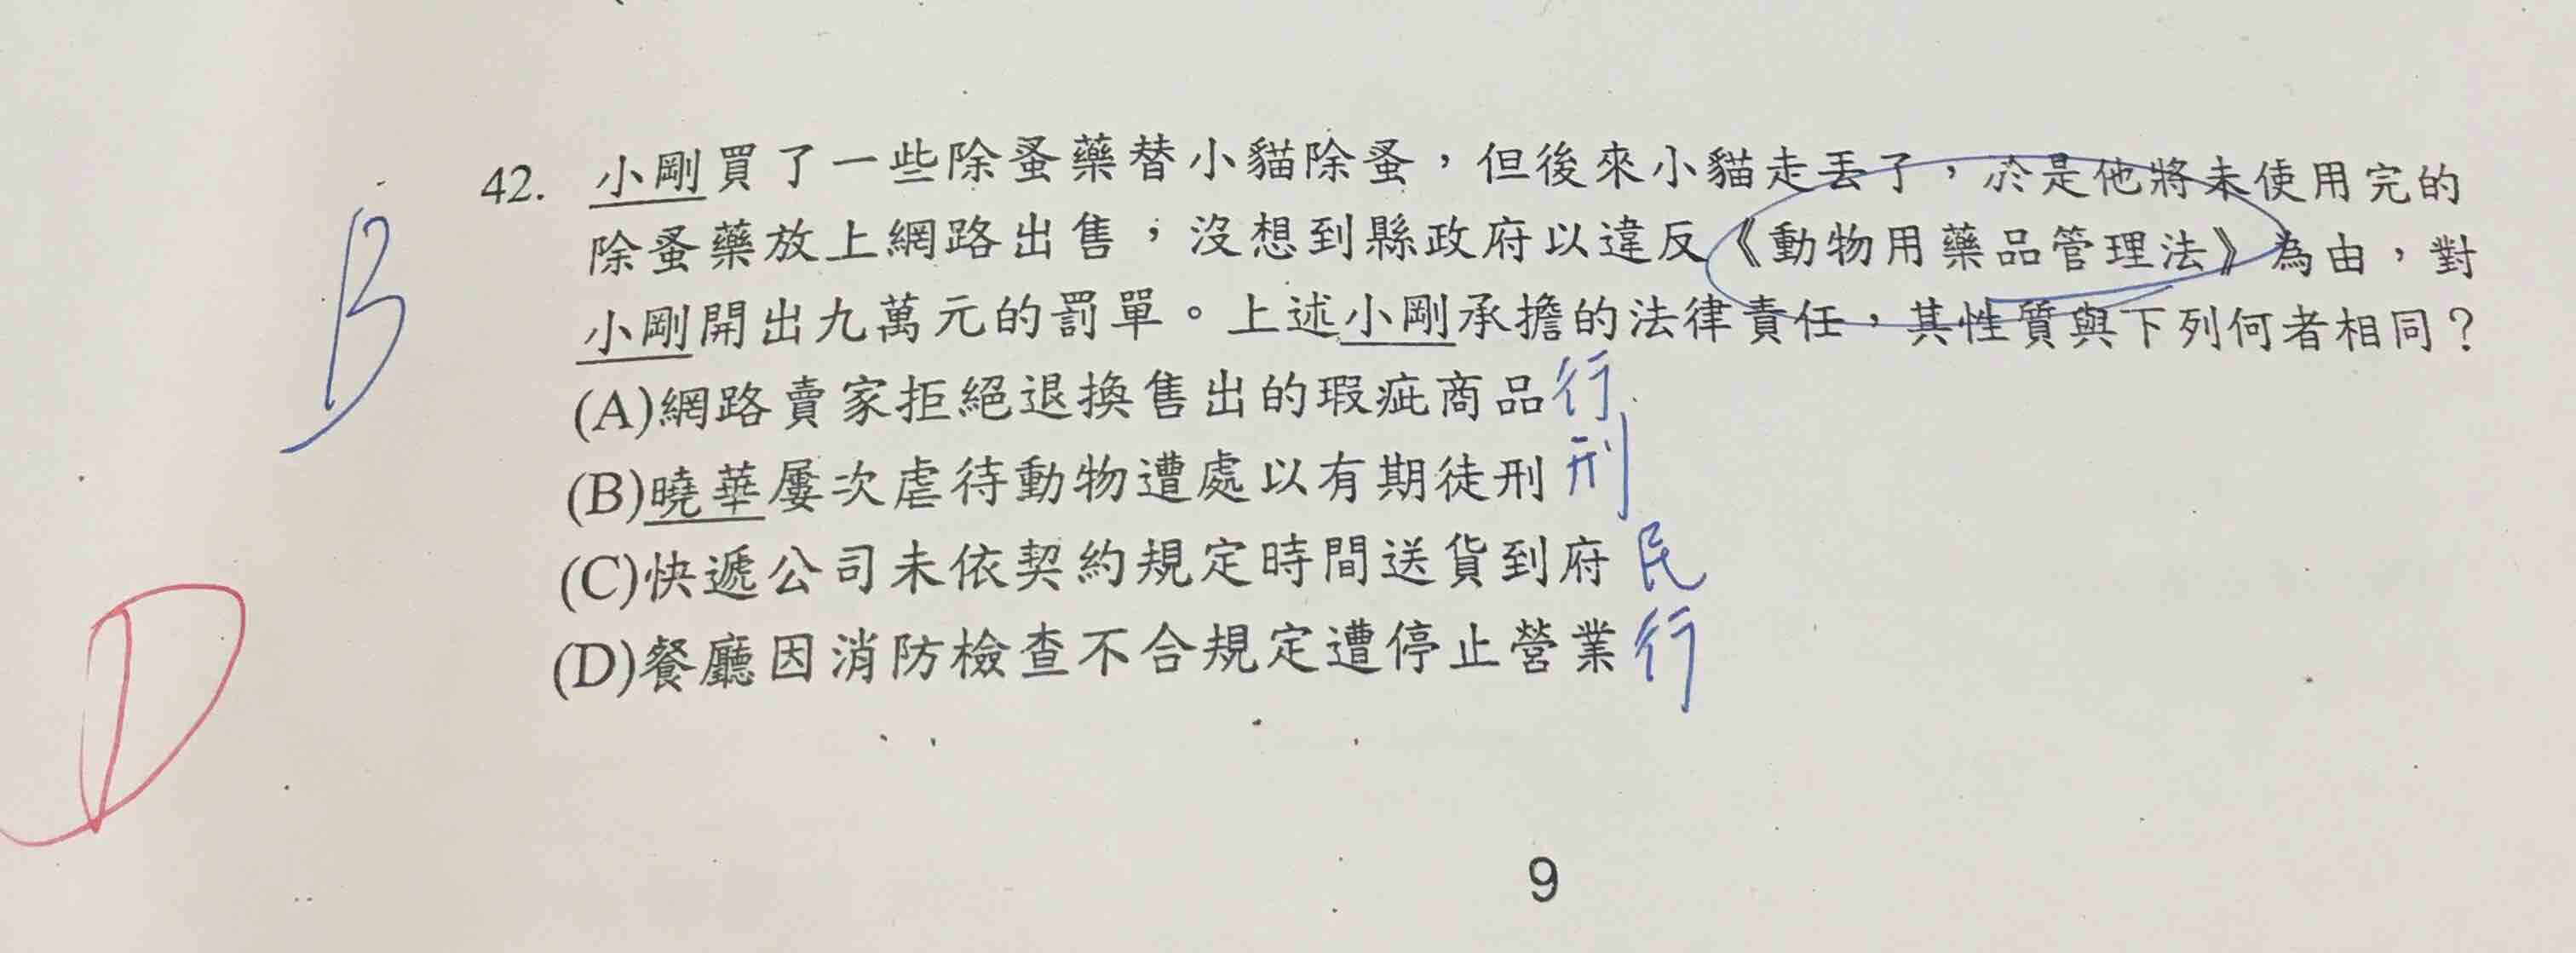 42. 小剛買了一些除蚤藥替小貓除蚤，但後來小貓走丟了，於是他將未使用完的
除蚤藥放上網路出售，沒想到縣政府以違反《動物用藥品管理法》為由，對
小剛開出九萬元的罰單。上述小剛承擔的法律責任，其性質與下列何者相同？
B
(A)網路賣家拒絕退換售出的瑕疵商品 行
(B)曉華屢次虐待動物遭處以有期徒刑 刑
(C)快遞公司未依契約規定時間送貨到府 民
(D)餐廳因消防檢查不合規定遭停止營業 行
D
9